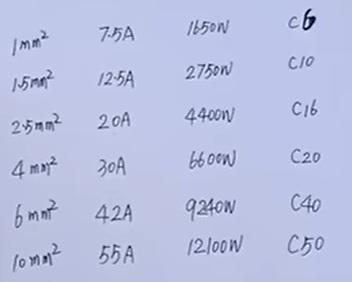 1mm² 7.5A 1650W C6
1.5mm² 12.5A 2750W C10
2.5mm² 20A 4400W C16
4mm² 30A 6600W C20
6mm² 42A 9240W C40
10mm² 55A 12100W C50